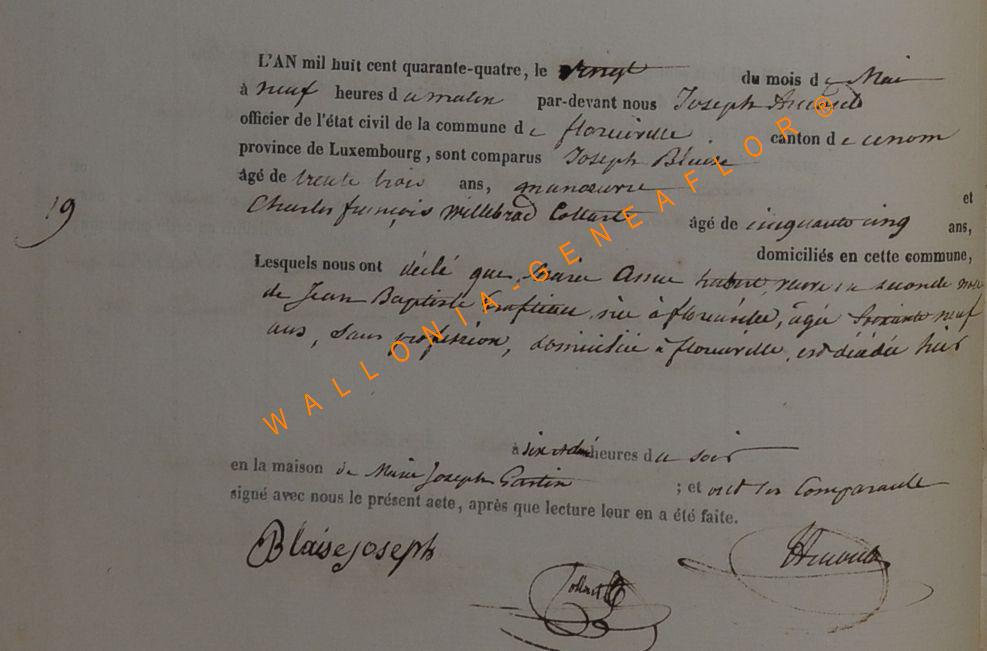 L'AN mil huit cent quarante-quatre, le vingt du mois de Mai
à neuf heures du matin par-devant nous Joseph Arnould
officier de l'état civil de la commune de florenville canton de ce nom
province de Luxembourg, sont comparus Joseph Blaise
âgé de trente trois ans, manœuvre et
19
Charles françois Willebrod Collard âgé de cinquante cinq ans,
domiciliés en cette commune,
Lesquels nous ont déclé que Marie Anne veuve en seconde
de Jean Baptiste née à florenville, agée soixante neuf
ans, sans profession, domiciliée à florenville, est décédée hier
à six et heures du soir
en la maison de Marie Joseph ; et ont les Comparants
signé avec nous le présent acte, après que lecture leur en a été faite.
Blaise joseph
WALLONIA-GENEAFLOR©